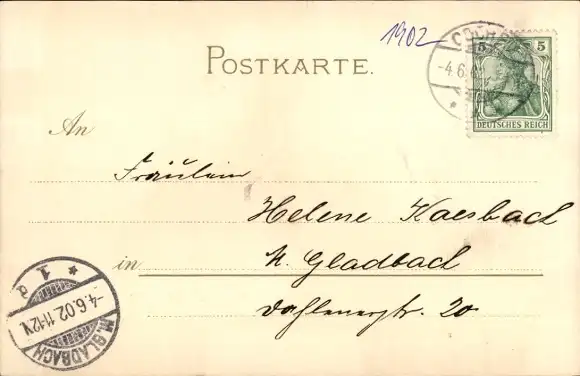 1902
POSTKARTE.
COCHEM
-4.6.02
5 5
DEUTSCHES REICH
An
Fräulein
Helene Kaesbach
in M. Gladbach
Dahlenerstr. 20
1 a
-4.6.02. 11-12V.
M. GLADBACH